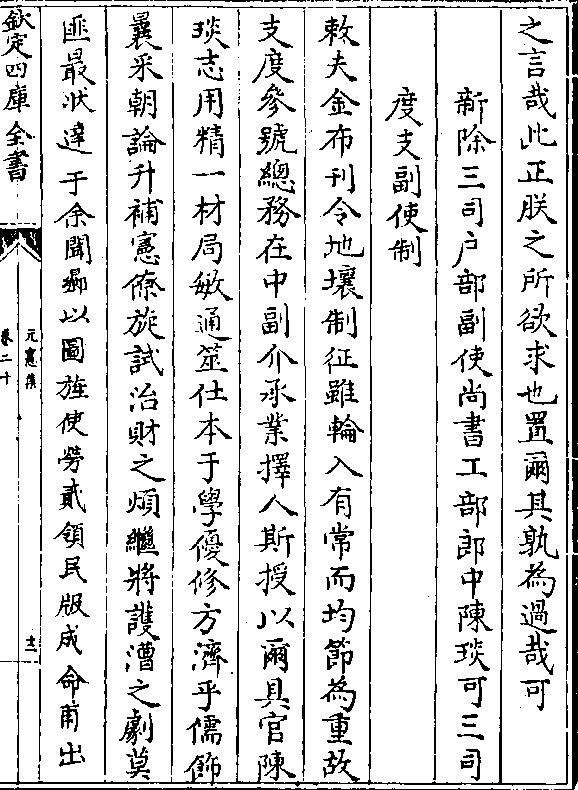 之言哉此正朕之所欲求也置爾其孰為過哉可
新除三司户部副使尚書工部郎中陳琰可三司
度支副使制
敕夫金布刊令地壤制征雖輪入有常而均節為重故
支度參號總務在中副介承業擇人斯授以爾具官陳
琰志用精一材局敏通筮仕本于學優修方濟乎儒飾
曩采朝論升補憲僚旋試治財之煩繼將護漕之劇莫
匪最狀達于余聞曏以圖旌使勞貳領民版成命甫出
欽定四庫全書
元憲集
卷二十
十二